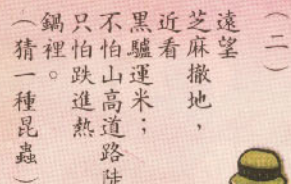 （二）
遠望
芝麻撒地，
近看
黑驢運米；
不怕山高道路陡
只怕跌進熱
鍋裡。
（猜一種昆蟲）